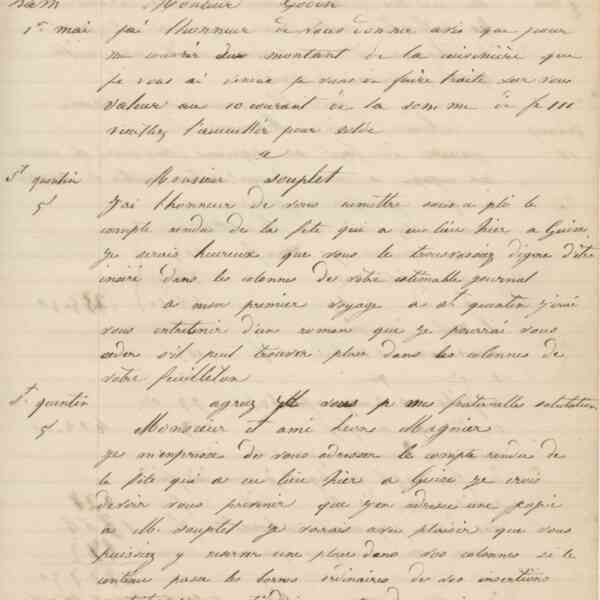 ham Monsieur Godin
1er mai j'ai l'honneur de vous donner avis que pour
me couvrir du montant de la cuisinière que
je vous ai je vous ai faire traite sur vous
valeur au 10 courant de la somme de f 111
veuillez l'accueillir pour solde
St quentin Monsieur Souplet
5 J'ai l'honneur de vous remettre sous ce pli le
compte rendu de la fete qui a eu lieu hier a Guise
Je serais heureux que vous le trouvassiez digne d'être
inséré dans les colonnes de votre estimable journal
a mon premier voyage a St quentin j'irai
vous entretenir d'un roman que je pourrai vous
céder s'il peut trouver place dans les colonnes de
votre feuilleton
agréez vous p mes fraternelles salutations
St quentin Monsieur et ami Leon Magnier
5 je m'empresse de vous adresser le compte rendu de
la fete qui a eu lieu hier a Guise Je crois
devoir vous prevenir que j'en adresse une copie
a M. Souplet Je verais avec plaisir que vous
puissiez y reserver une place dans vos colonnes si le
contenu passe les bornes ordinaires de vos insertions